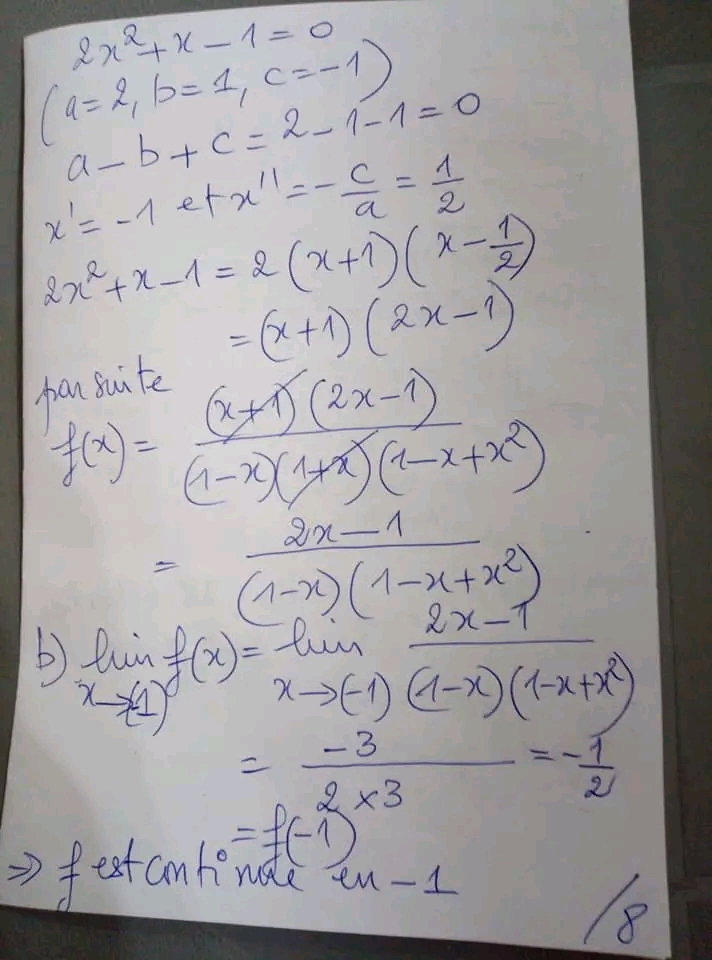 2x² + x − 1 = 0
(a = 2, b = 1, c = −1)
a − b + c = 2 − 1 − 1 = 0
x' = −1 et x'' = −c/a = 1/2
2x² + x − 1 = 2(x+1)(x − 1/2)
= (x+1)(2x−1)
par suite
f(x) = (x+1)(2x−1) / (1−x)(1+x)(1−x+x²)
= 2x−1 / (1−x)(1−x+x²)
b) lim f(x) = lim 2x−1 / (1−x)(1−x+x²)
x→(-1) x→(−1)
= −3 / 2×3 = −1/2
= f(−1)
⇒ f est continue en −1
/8